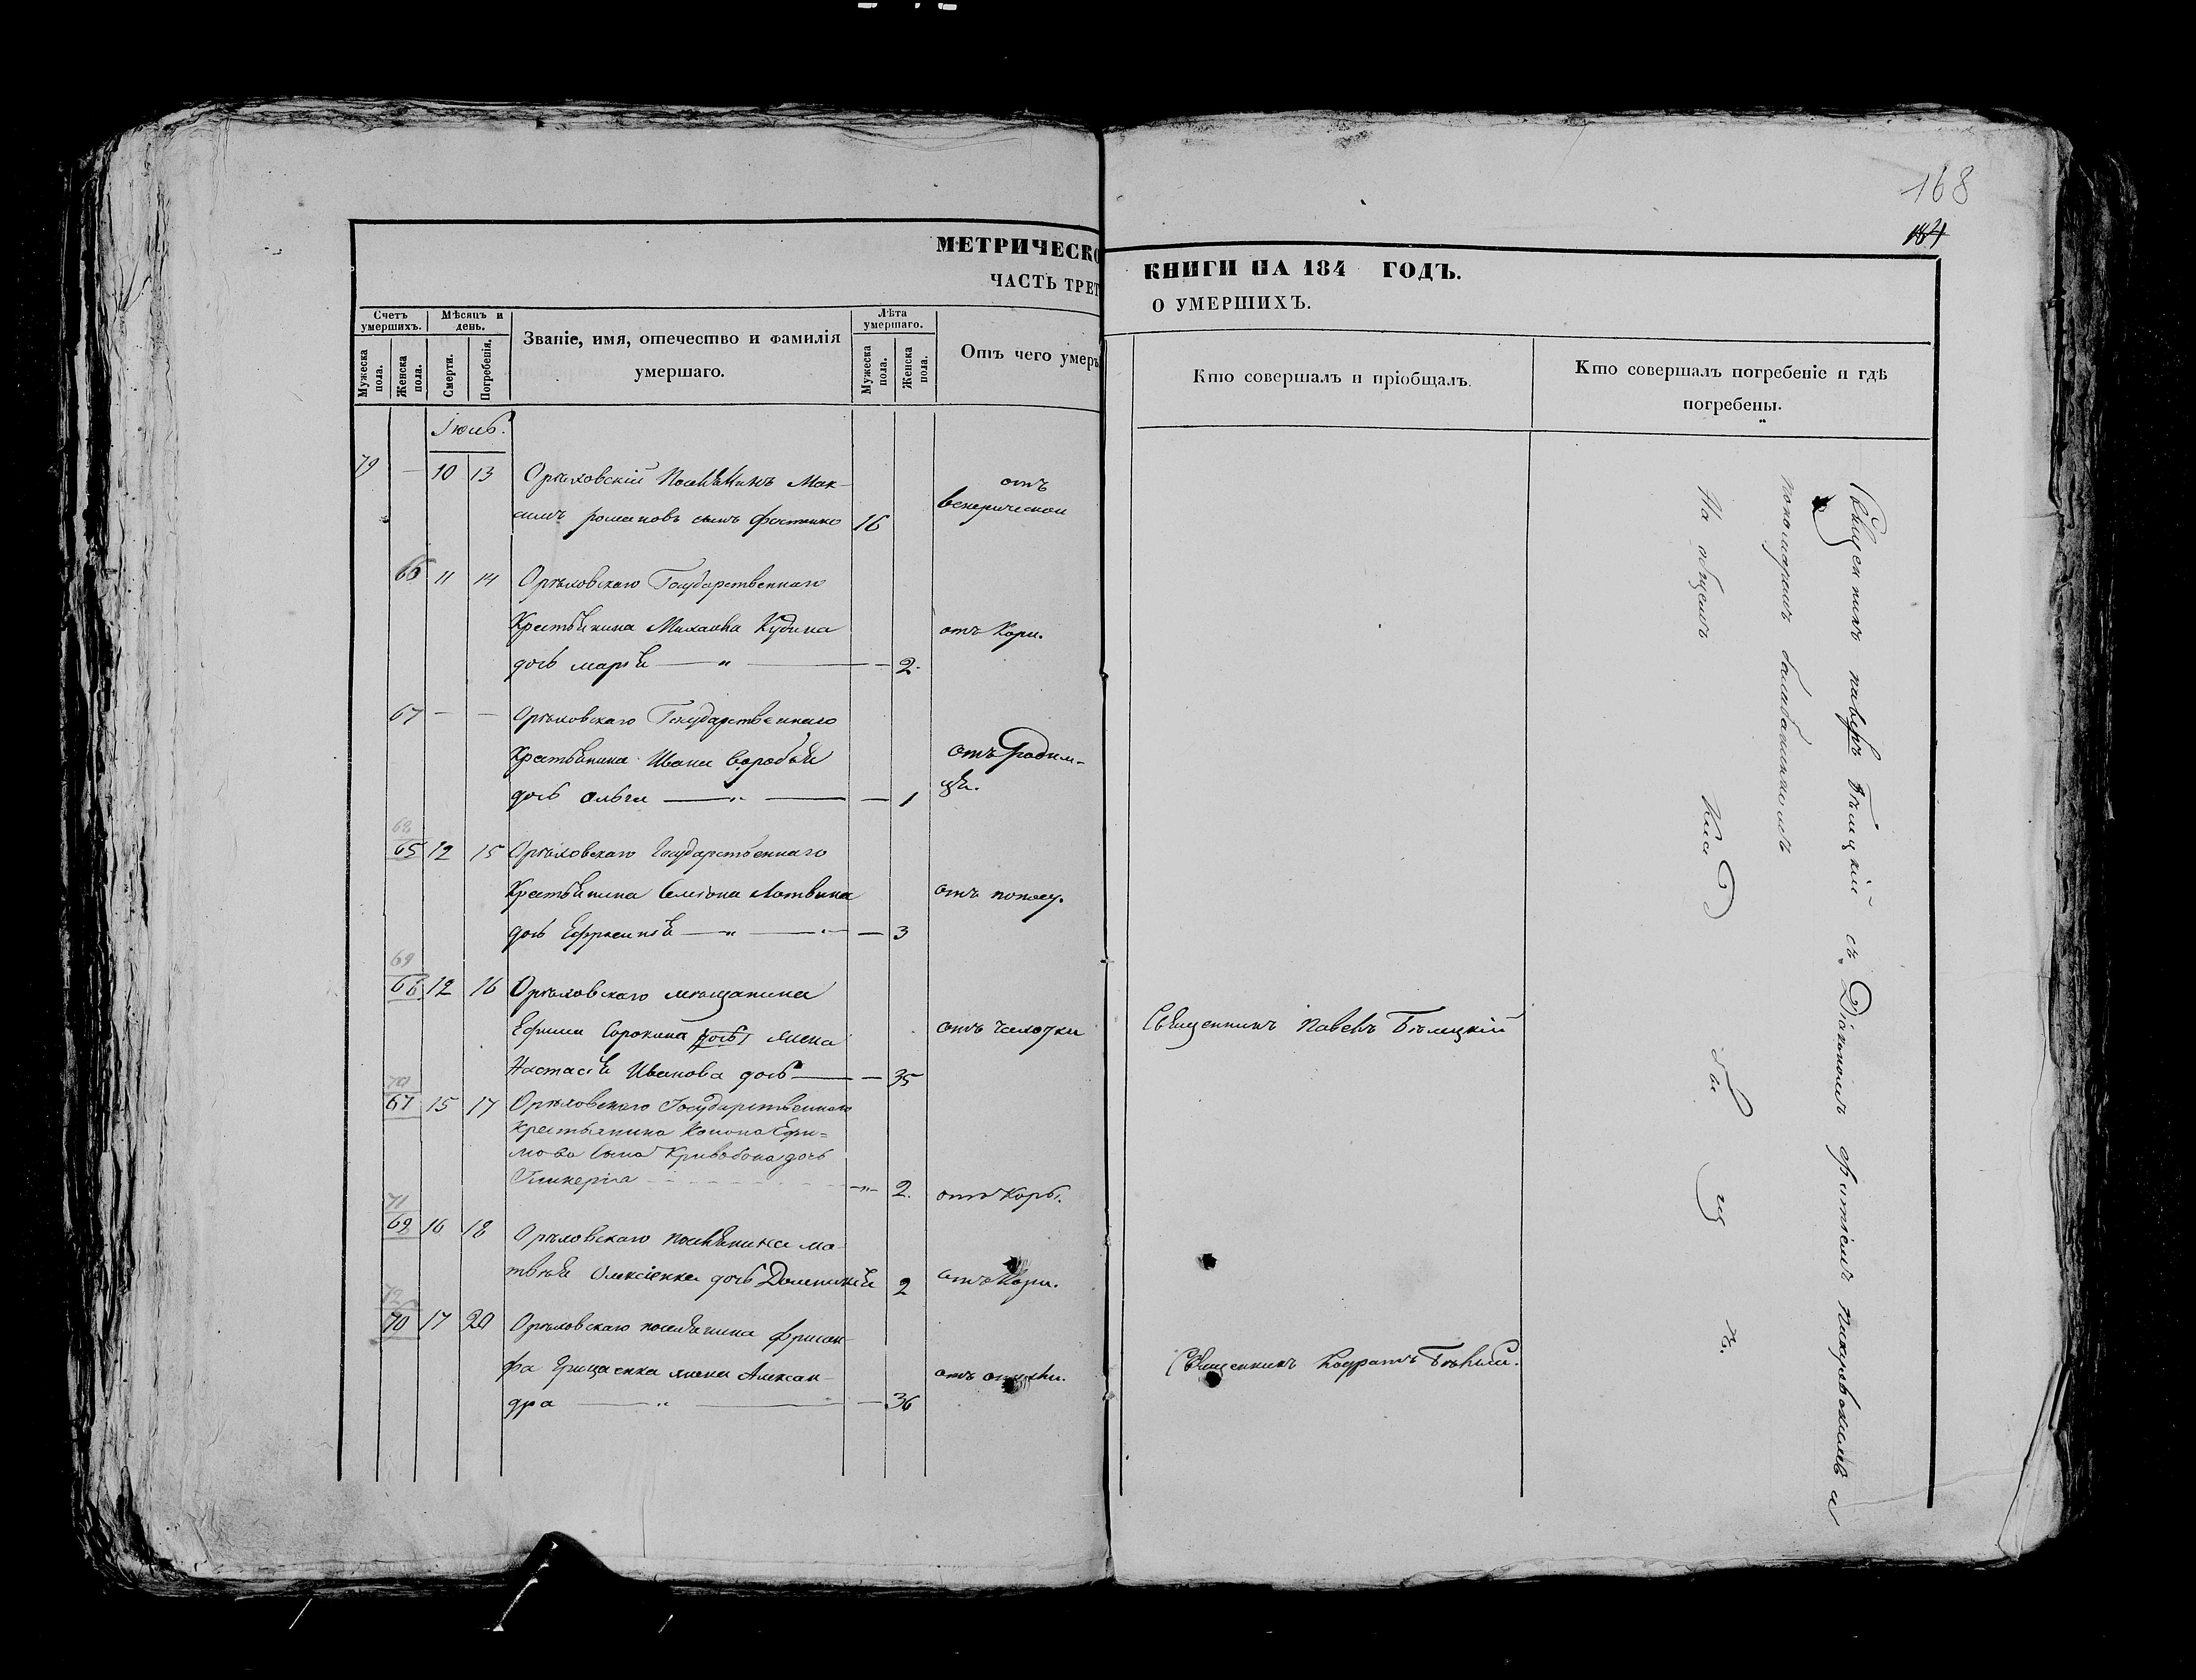 168
МЕТРИЧЕСКО
ЧАСТЬ ТРЕТ
КНИГИ НА 184 ГОДЪ.
О УМЕРШИХЪ.
Счетъ умершихъ.
Мужеска пола.
Женска пола.
Мѣсяцъ и день.
Смерти.
Погребенія.
Званіе, имя, отечество и фамилія
умершаго.
Лѣта умершаго.
Мужеска пола.
Женска пола.
Отъ чего умеръ
Кто совершалъ и пріобщалъ.
Кто совершалъ погребеніе и гдѣ
погребены.
Іюль.
79 — 10 13 Орѣховскій Поселянинъ Мак-
симъ романовъ сынъ 16
отъ
венерической
66 11 14 Орѣховскаго Государственнаго
Крестьянина Михаила Кудина отъ Кори.
дочь марія — " — 2.
67 — — Орѣховскаго Государственнаго
Крестьянина Ивана Воробья отъ Родим-
дочь Ольга — " — 1 ца.
68
65 12 15 Орѣховскаго Государственнаго
Крестьянина Семіона Литвина отъ поносу.
дочь Ефросинія — " — 3
69
66 12 16 Орѣховскаго мещанина
Ефима Сорокина дочь жена отъ чахотки Священникъ Павелъ Бѣлецкій
Настасія Иванова дочь — 35
70
67 15 17 Орѣховскаго Государственнаго
крестьянина Конона Ефи=
мова сына Кривобока дочь
Гликерія — " — 2. отъ Кори.
71
69 16 18 Орѣховскаго поселянина ма-
твѣя Олексіенка дочь Доминикія 2 отъ Кори.
72
70 17 20 Орѣховскаго поселянина
Грищенка жена Алексан-
дра — " — 36
Священникъ Кодратъ
Священникъ павелъ Бѣлецкій съ Діакономъ
пономаремъ балабаненкомъ
На общемъ Кладбищѣ.